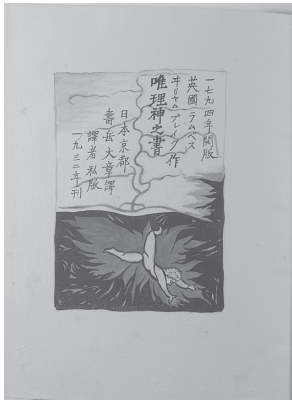 一七九四年開版
英國 ラムベス
ヰリヤム ブレイク 作
唯理神之書
日本京都
壽岳文章譯
譯者私版
一九三二年刊